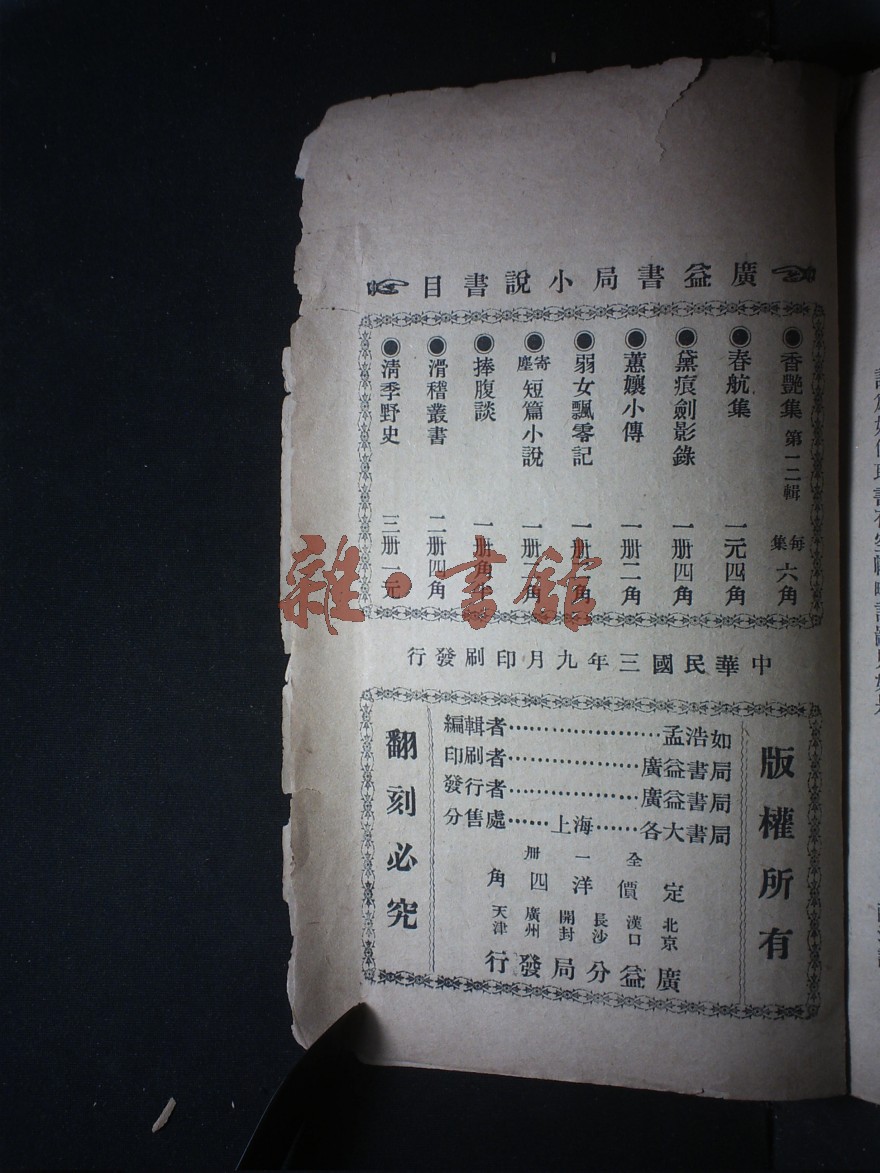 廣益書局小說書目
◉香艷集 第一二輯 每集六角
◉春航集 一元四角
◉黛痕劍影錄 一册四角
◉蕙孃小傳 一册二角
◉弱女飄零記 一册二角
◉寄塵短篇小說 一册 角
◉捧腹談 一册角半
◉滑稽叢書 二册四角
◉清季野史 三册一元
雜·書館
中華民國三年九月印刷發行
版權所有
編輯者…………………孟浩如
印刷者………………廣益書局
發行者………………廣益書局
分售處……上海……各大書局
全一册
定價洋四角
北京
漢口
長沙
開封
廣州
天津
廣益分局發行
翻刻必究